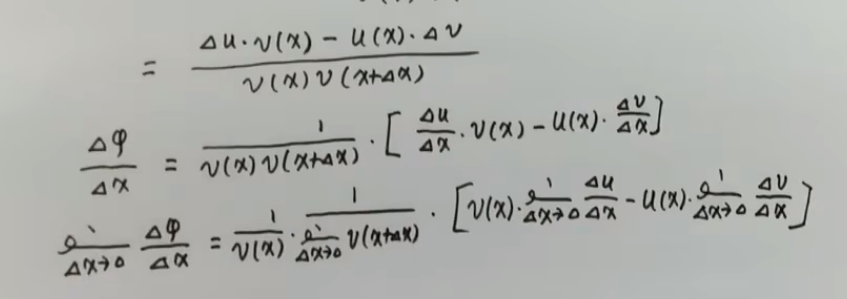 = \frac{\Delta u \cdot v(x) - u(x) \cdot \Delta v}{v(x) v(x+\Delta x)}
\frac{\Delta \varphi}{\Delta x} = \frac{1}{v(x) v(x+\Delta x)} \cdot \left[ \frac{\Delta u}{\Delta x} \cdot v(x) - u(x) \cdot \frac{\Delta v}{\Delta x} \right]
\lim_{\Delta x \to 0} \frac{\Delta \varphi}{\Delta x} = \frac{1}{v(x)} \cdot \frac{1}{\lim_{\Delta x \to 0} v(x+\Delta x)} \cdot \left[ v(x) \cdot \lim_{\Delta x \to 0} \frac{\Delta u}{\Delta x} - u(x) \cdot \lim_{\Delta x \to 0} \frac{\Delta v}{\Delta x} \right]